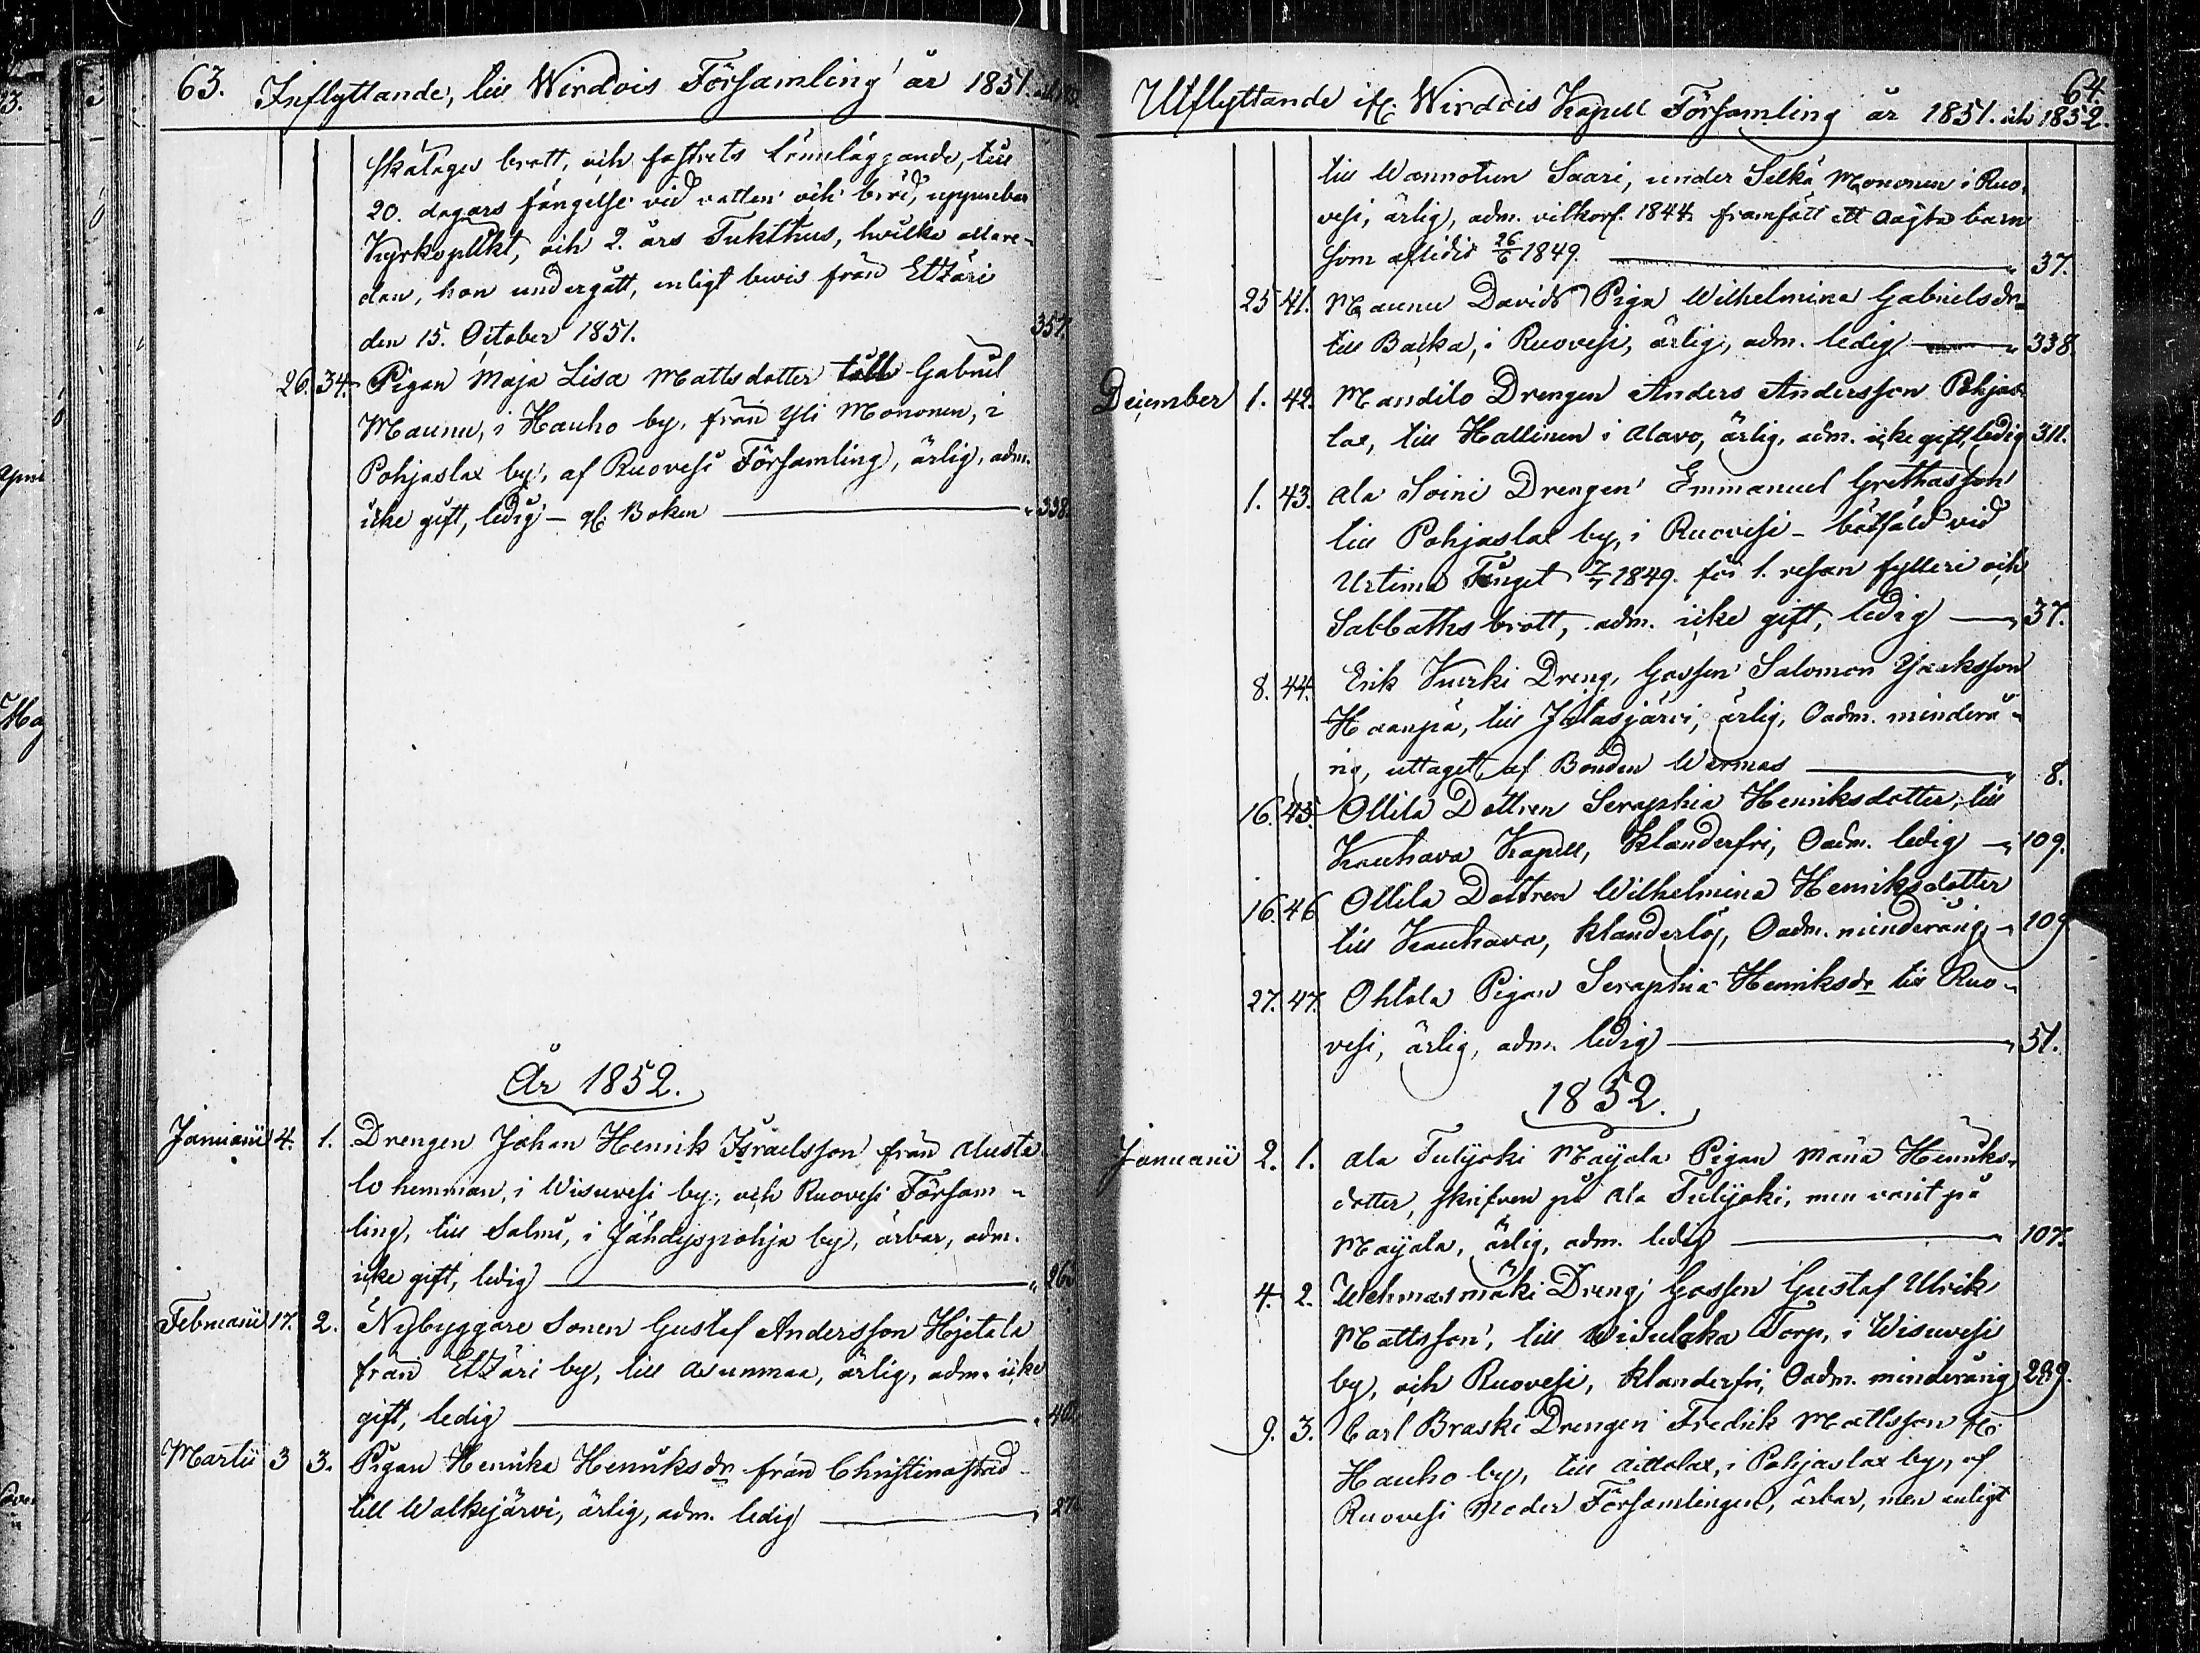 63. Inflyttande, till Wirdois Församling år 1851.
brott, och fostrets lönnläggande, till
20. dagars fängelse vid vatten och bröd, uppenbar
Kyrkoplikt, och 2. års Tukthus, hvilka allare-
dan, hon undergått, enligt bevis från Etzäri
den 15. October 1851. 357.
26. 34. Pigan Maja Lisa Mattsdotter till Gabriel
Maunu, i Hauho by, från Yli Mononen, i
Pohjaslax by, af Ruovesi Församling, ärlig, adm.
icke gift, ledig - Boken 338.
År 1852.
Januarii 4. 1. Drengen Johan Henrik Israelsson från Austa
lo hemman, i Wisuvesi by, och Ruovesi Försam-
ling, till Salmi, i Jähdyspohja by, ärbar, adm.
icke gift, ledig 26
Februarii 17. 2. Nybyggare Sonen Gustaf Andersson Hjetala
från Etzäri by, till Asunmaa, ärlig, adm. icke
gift, ledig 40.
Martii 3 3. Pigan Henrika Henriksdr från Christinastad
till Walkejärvi, ärlig, adm. ledig
64.
Utflyttande ifr. Wirdois Kapell Församling år 1851. och 1852.
till Wannotun Saari, under Silkä Mononen i Ruo-
vesi, ärlig, adm. vilkorl. 1844. framfödt ett oägta barn
som aflidit 26/6 1849. 37.
25 41. Maunu Davids Piga Wilhelmina Gabrielsdr
till Backa, i Ruovesi, ärlig, adm. ledig 338.
December 1. 42. Mandilo Drengen Anders Andersson Pohjas-
lax, till Hallinen i Alavo, ärlig, adm. icke gift, ledig 311.
1. 43. Ala Soini Drengen Emmanuel Grethasson
till Pohjaslax by, i Ruovesi - botfäld vid
Urtima Tinget 7/7 1849. för 1. resan fylleri och
Sabbaths brott, adm. icke gift, ledig 37.
8. 44. Erik Kurki Dreng, Gossen Salomon Isaksson
Haanpä, till Jalasjärvi, ärlig, Oadm. minderå-
rig, uttaget af Bonden Warmas 8.
16. 45. Ollila Dottren Seraphia Henriksdotter, till
Kauhava Kapell, klanderfri, Oadm. ledig 109.
16. 46 Ollila Dottren Wilhelmina Henriksdotter
till Kauhava, klanderlös, Oadm. minderårig 109
27. 47. Ohtola Pigan Seraphia Henriksdr till Ruo-
vesi, ärlig, adm. ledig 51.
1852.
Januarii 2. 1. Ala Tulijoki Mayala Pigan Maria Henriks-
dotter, skrifven på Ala Tulijoki, men varit på
Mayala, ärlig, adm. ledig 107.
4. 2. Uehmasmäki Dreng, Gossen Gustaf Ulrik
Mattsson, till Torp, i Wisuvesi
by, och Ruovesi, klanderfri, Oadm. minderårig 289.
9. 3. Carl Braski Drengen Fredrik Mattsson fr.
Hauho by, till Aittolax, i Pohjaslax by, af
Ruovesi Moder Församlingen, ärbar, men enligt